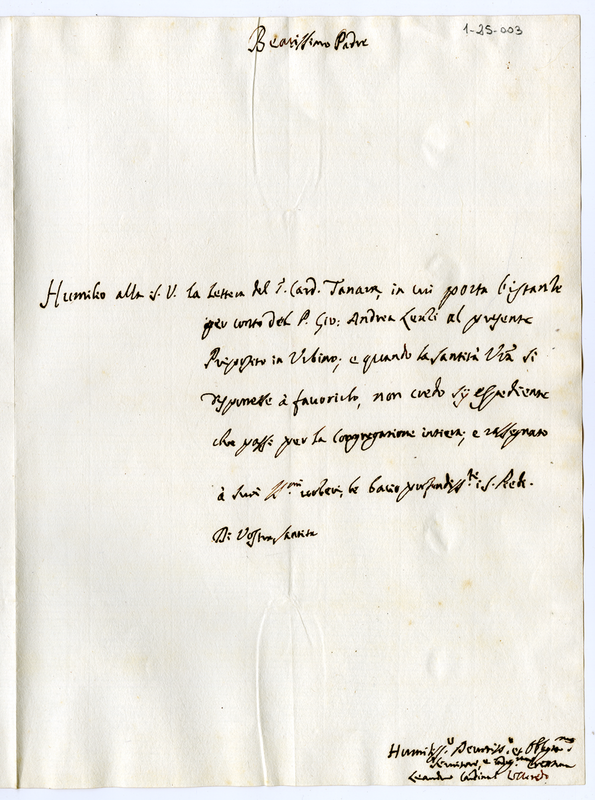 1-25-003
Beatissimo Padre
Humilio alla S. V. la lettera del S. Card. Tanara, in cui porta l'istante
per conto del P. Gio: Andrea Lenzi al presente
Preposito in Urbino; e quando la Santità Vra si
disponesse à favorirlo, non credo sij espediente
che passi per la Congregatione intiera; e rassegnato
à suoi le bacio i S. Piedi.
Di Vostra Santità
Humiliss.o Devotiss.o et
Servitore, e Creatura
Leandro Cardinal Colloredo